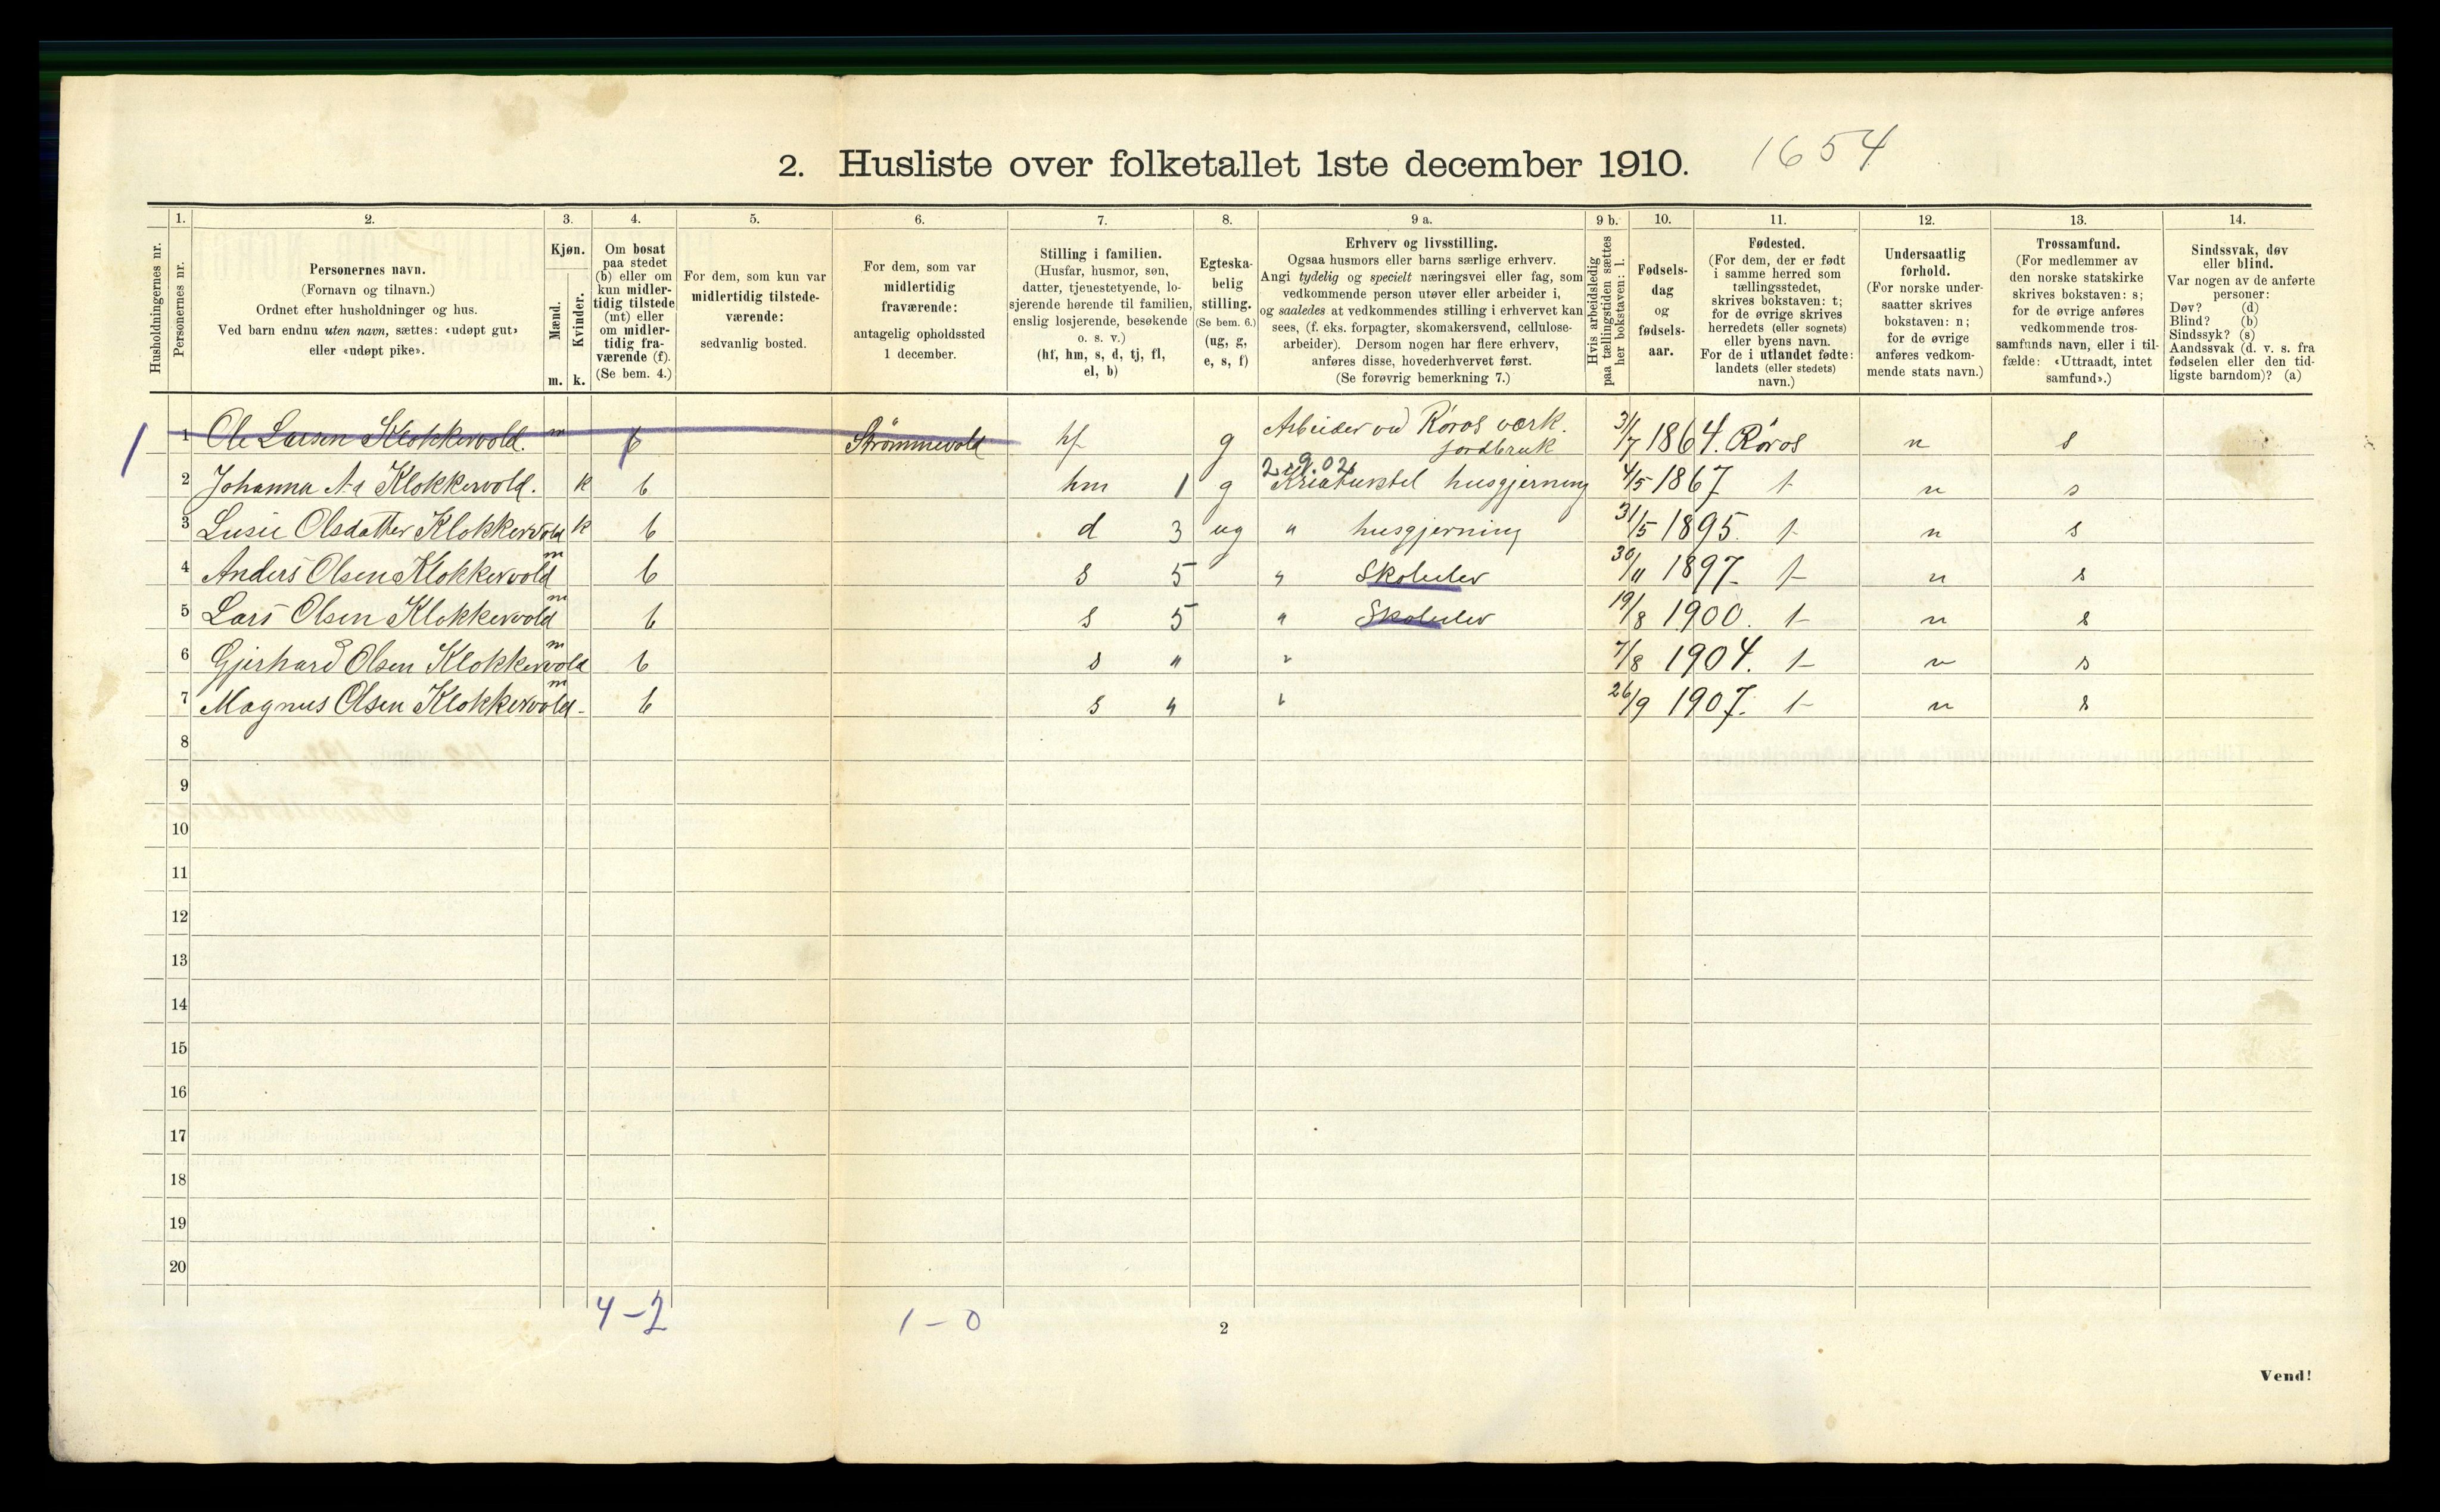 2. Husliste over folketallet 1ste december 1910. 1654
Husholdningernes nr.
1.
Personernes nr.
2.
Personernes navn.
(Fornavn og tilnavn.)
Ordnet efter husholdninger og hus.
Ved barn endnu uten navn, sættes: «udøpt gut»
eller «udøpt pike».
3.
Kjøn.
Mænd.
Kvinder.
m. k.
4.
Om bosat
paa stedet
(b) eller om
kun midler-
tidig tilstede
(mt) eller
om midler-
tidig fra-
værende (f).
(Se bem. 4.)
5.
For dem, som kun var
midlertidig tilstede-
værende:
sedvanlig bosted.
6.
For dem, som var
midlertidig
fraværende:
antagelig opholdssted
1 december.
7.
Stilling i familien.
(Husfar, husmor, søn,
datter, tjenestetyende, lo-
sjerende hørende til familien,
enslig losjerende, besøkende
o. s. v.)
(hf, hm, s, d, tj, fl,
el, b)
8.
Egteska-
belig
stilling.
(Se bem. 6.)
(ug, g,
e, s, f)
9 a.
Erhverv og livsstilling.
Ogsaa husmors eller barns særlige erhverv.
Angi tydelig og specielt næringsvei eller fag, som
vedkommende person utøver eller arbeider i,
og saaledes at vedkommendes stilling i erhvervet kan
sees, (f. eks. forpagter, skomakersvend, cellulose-
arbeider). Dersom nogen har flere erhverv,
anføres disse, hovederhvervet først.
(Se forøvrig bemerkning 7.)
9 b.
Hvis arbeidsledig
paa tællingstiden sættes
her bokstaven: l.
10.
Fødsels-
dag
og
fødsels-
aar.
11.
Fødested.
(For dem, der er født
i samme herred som
tællingsstedet,
skrives bokstaven: t;
for de øvrige skrives
herredets (eller sognets)
eller byens navn.
For de i utlandet fødte:
landets (eller stedets)
navn.)
12.
Undersaatlig
forhold.
(For norske under-
saatter skrives
bokstaven: n;
for de øvrige
anføres vedkom-
mende stats navn.)
13.
Trossamfund.
(For medlemmer av
den norske statskirke
skrives bokstaven: s;
for de øvrige anføres
vedkommende tros-
samfunds navn, eller i til-
fælde: «Uttraadt, intet
samfund».)
14.
Sindssvak, døv
eller blind.
Var nogen av de anførte
personer:
Døv? (d)
Blind? (b)
Sindssyk? (s)
Aandssvak (d. v. s. fra
fødselen eller den tid-
ligste barndom)? (a)
1 1 Ole Larsen Klokkervold. m f Strömmevold hf g Arbeider ved Röros værk. jordbruk 31/7 1864. Röros n s
2.9.02
2 Johanna Ad Klokkervold. k b hm 1 g Kreaturstel husgjerning 4/5 1867 t n s
3 Lusie Olsdatter Klokkervold k b d 3 ug " husgjerning 31/5 1895. t n s
4 Anders Olsen Klokkervold m b s 5 " Skoleelev 30/11 1897. t n s
5 Lars Olsen Klokkervold m b s 5 " Skoleelev 19/8 1900. t n s
6 Gjerhard Olsen Klokkervold m b s " " 7/8 1904. t n s
7 Magnus Olsen Klokkervold. m b s " " 26/9 1907. t n s
8
9
10
11
12
13
14
15
16
17
18
19
20
4-2 1-0
2
Vend!